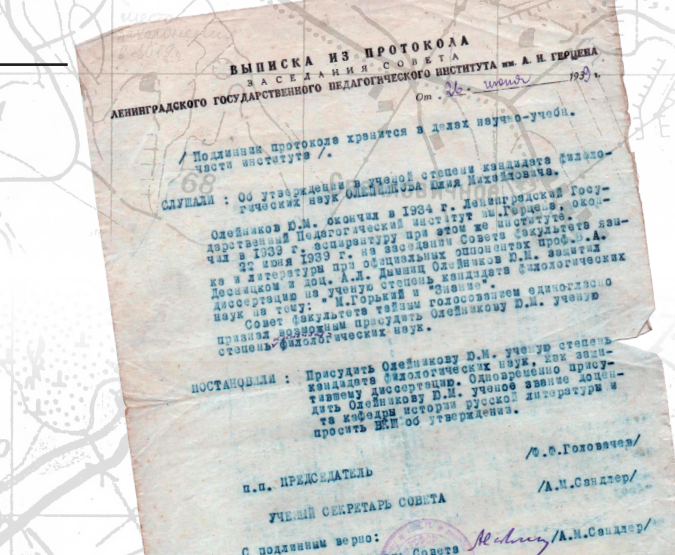 ВЫПИСКА ИЗ ПРОТОКОЛА
ЗАСЕДАНИЯ СОВЕТА
ЛЕНИНГРАДСКОГО ГОСУДАРСТВЕННОГО ПЕДАГОГИЧЕСКОГО ИНСТИТУТА им. А. И. ГЕРЦЕНА
От 26 июня 1939 г.
/ Подлинник протокола хранится в делах научно-учебн.
части института /.
СЛУШАЛИ : Об утверждении в ученой степени кандидата филоло-
гических наук ОЛЕЙНИКОВА Юлия Михайловича.
Олейников Ю.М. окончил в 1934 г. Ленинградский Госу-
дарственный Педагогический институт им.Герцена, окон-
чил в 1939 г. аспирантуру при этом же институте.
22 июня 1939 г. на заседании Совета факультета язы-
ка и литературы при официальных оппонентах проф.В.А.
Десницком и доц. А.Л. Дымшиц Олейников Ю.М. защитил
диссертацию на ученую степень кандидата филологических
наук на тему: "М.Горький и "Знание".
Совет факультета тайным голосованием единогласно
признал возможным присудить Олейникову Ю.М. ученую
степень филологических наук.
ПОСТАНОВИЛИ : Присудить Олейникову Ю.М. ученую степень
кандидата филологических наук, как защи-
тившему диссертацию. Одновременно прису-
дить Олейникову Ю.М. ученое звание доцен-
та кафедры истории русской литературы и
просить ВКВШ об утверждения.
п.п. ПРЕДСЕДАТЕЛЬ /Ф.Ф.Головачев/
УЧЕНЫЙ СЕКРЕТАРЬ СОВЕТА /А.М.Сандлер/
С подлинным верно:
Совета /А.М.Сандлер/
68